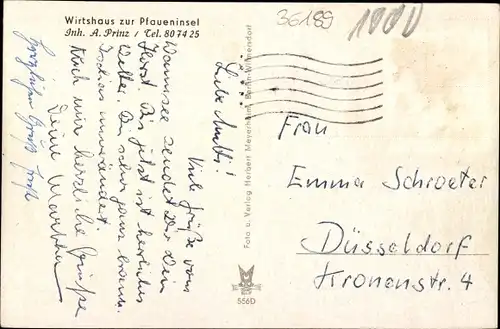 Wirtshaus zur Pfaueninsel
Inh. A. Prinz / Tel. 80 74 25
36189
1000
Liebe Mutti!
Viele Grüße vom
Wannsee sendet Dir Dein
Horst. Bis jetzt ist herrliches
Wetter. Bin schon ganz braun.
Auch mir herzliche Grüße
Dein
Herzlichen Gruß
Foto u. Verlag Herbert Meyerheim, Berlin-Wilmersdorf
556D
Frau
Emma Schroeter
Düsseldorf
Kronenstr. 4